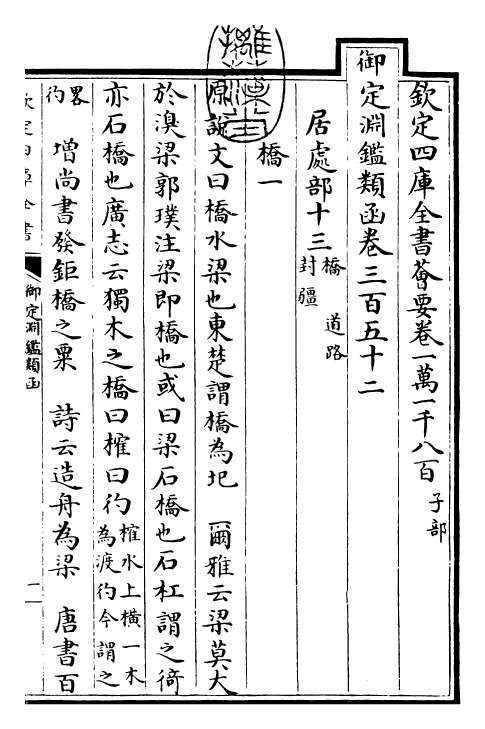 欽定四庫全書薈要卷一萬一千八百 子部
御定淵鑑類函卷三百五十二
居處部十三 橋 道路 封疆
橋一
原說文曰橋水梁也東楚謂橋為圯 爾雅云梁莫大
於溴梁郭璞注梁即橋也或曰梁石橋也石杠謂之徛
亦石橋也廣志云獨木之橋曰榷曰彴 榷水上橫一木為渡彴今謂之
畧彴 增尚書發鉅橋之粟 詩云造舟為梁 唐書百
欽定四庫全書
御定淵鑑類函
一